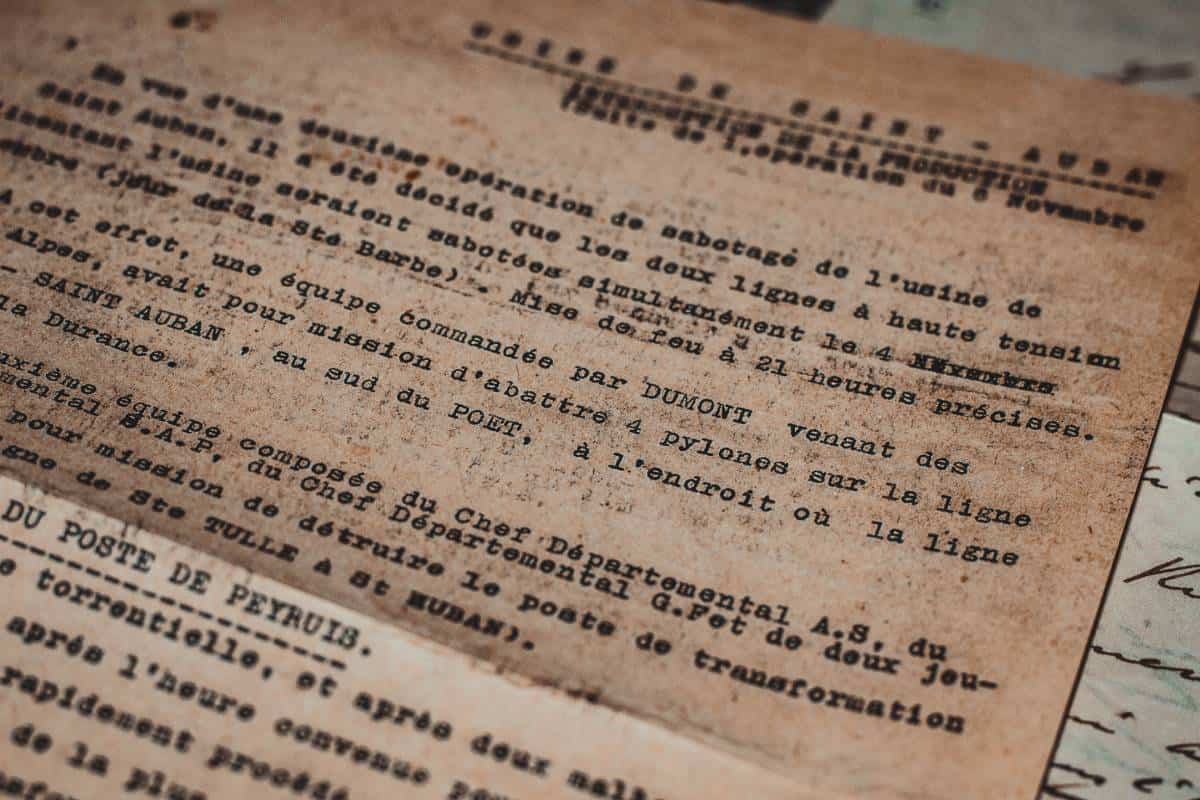 DE SAINT - AUBAN
INTERRUPTION DE LA PRODUCTION
(Suite de l'opération du 6 Novembre
En vue d'une deuxième opération de sabotagé de l'usine de
Saint Auban, il a été décidé que les deux lignes à haute tension
l'usine seraient sabotées simultanément le 4 Novembre
(jour de la Sté Barbe). Mise de feu à 21 heures précises.
A cet effet, une équipe commandée par DUMONT venant des
Alpes, avait pour mission d'abattre 4 pylones sur la ligne
- SAINT AUBAN , au sud du POET, à l'endroit où la ligne
la Durance.
uxième équipe composée du Chef Départemental A.S. du
mental S.A.P. du Chef Départemental G.Fet de deux jeu-
pour mission de détruire le poste de transformation
gne de Ste TULLE à St AUBAN).
DU POSTE DE PEYRUIS.
e torrentielle, et aprés deux
aprés l'heure convenue
rapidement procédé
de la plus